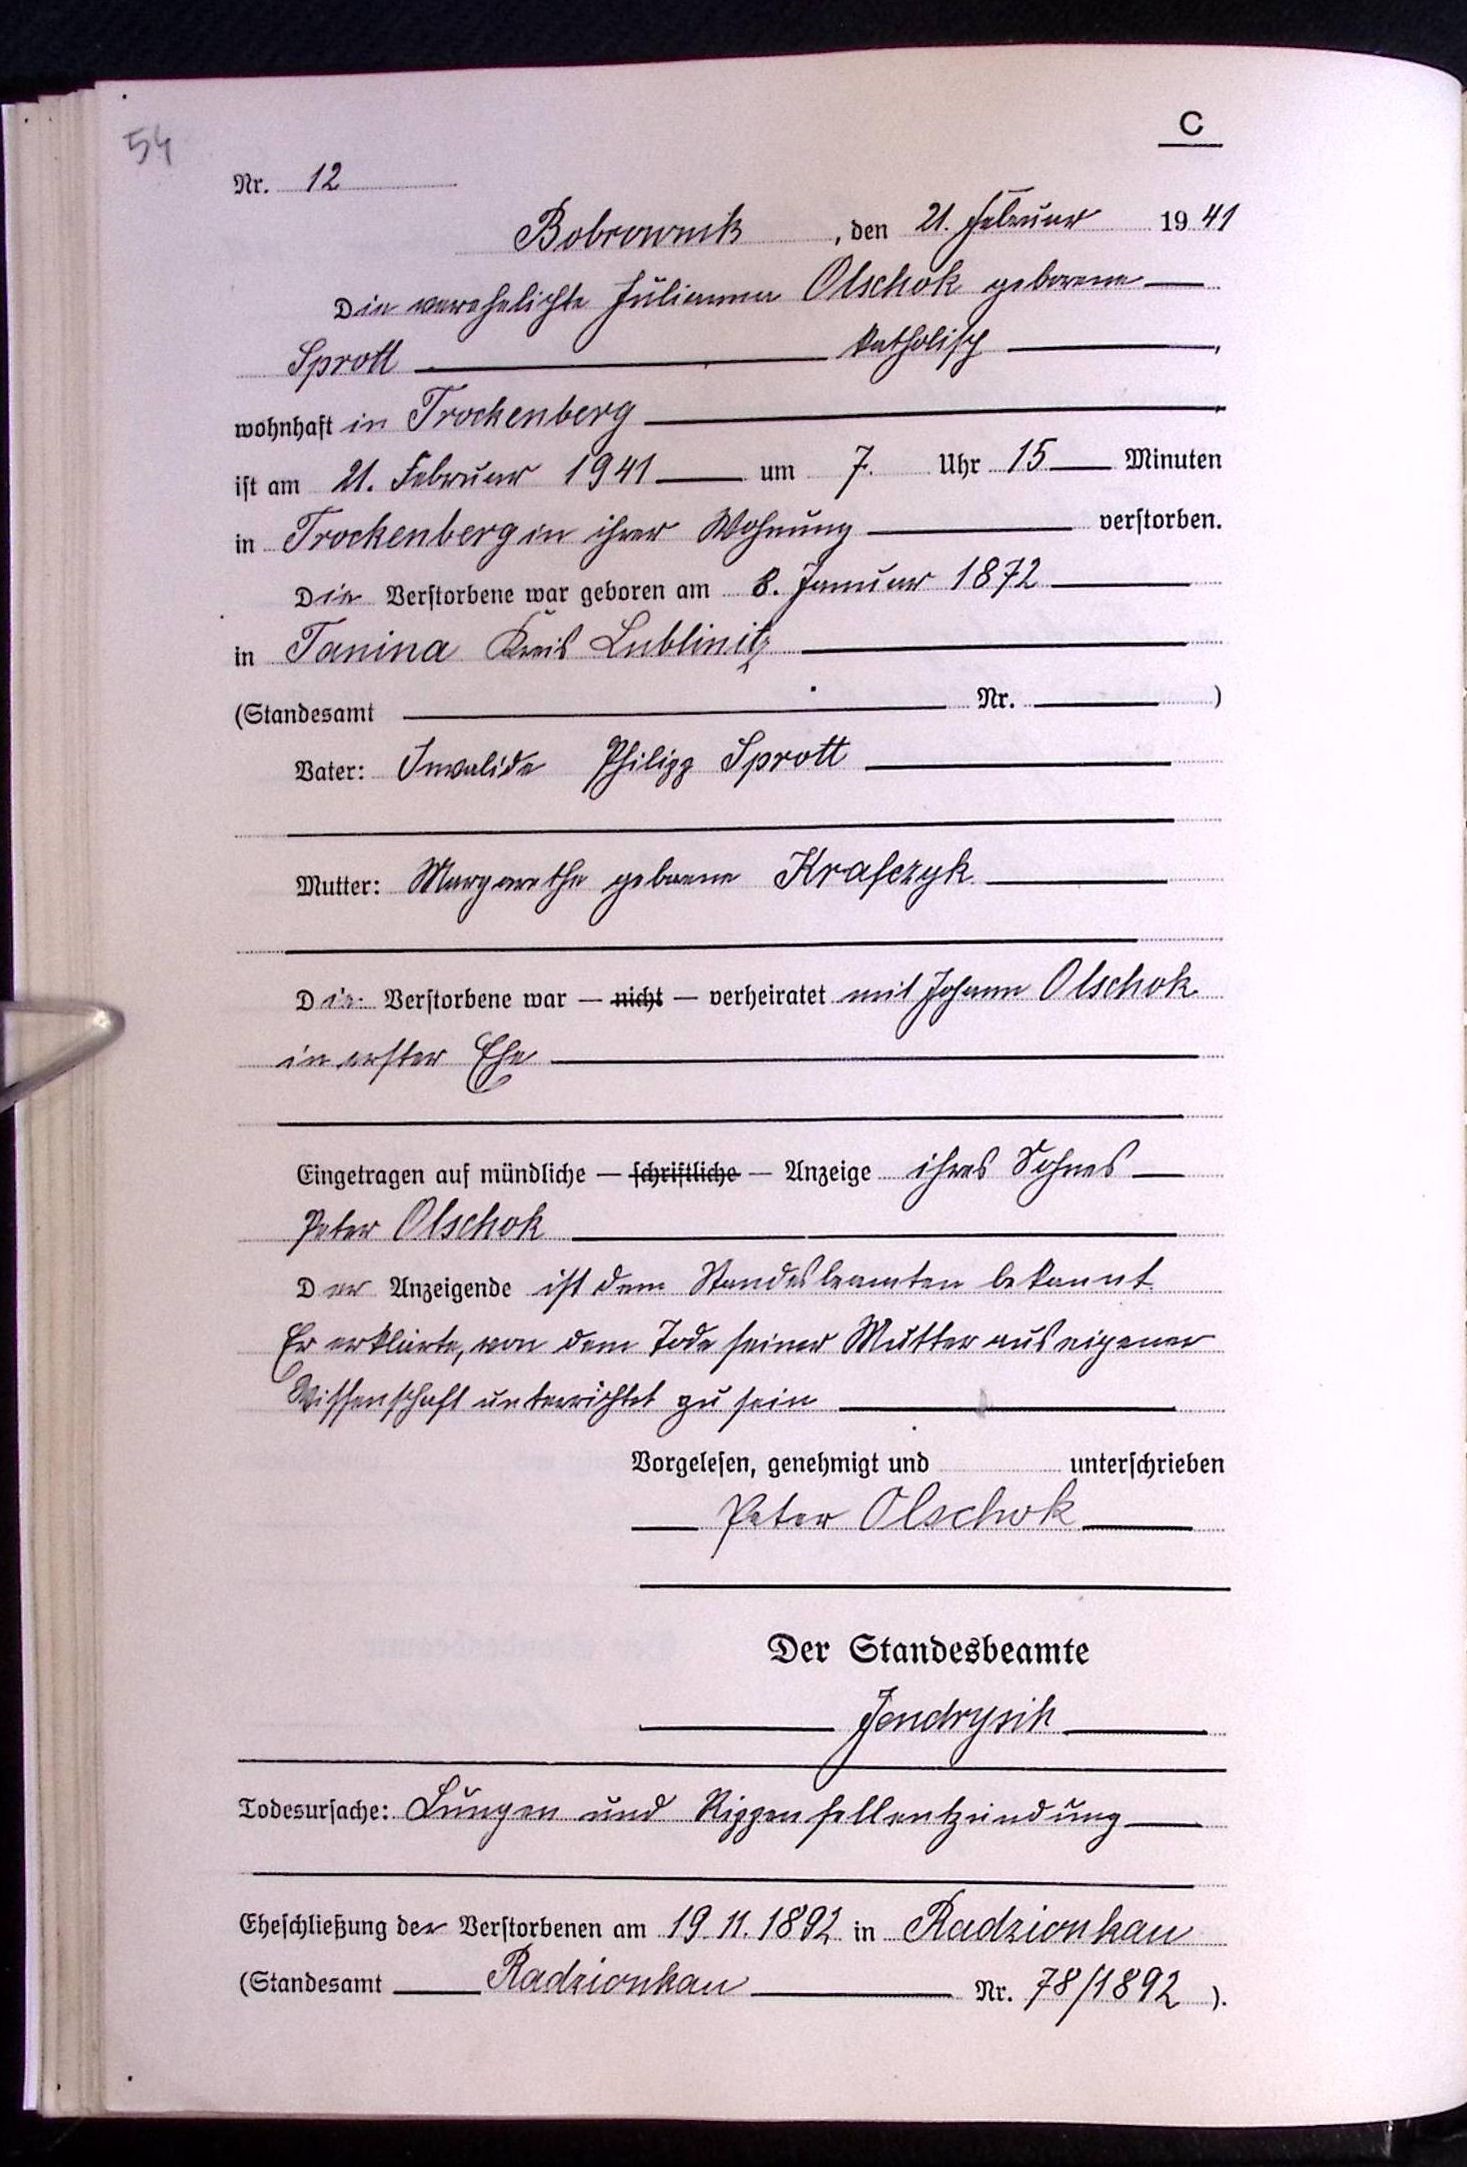 54
C
Nr. 12
Bobrownik, den 21. Februar 1941
Die verehelichte Julianna Olschok geborene
Sprott katholisch,
wohnhaft in Trockenberg
ist am 21. Februar 1941 um 7. Uhr 15 Minuten
in Trockenberg in ihrer Wohnung verstorben.
Die Verstorbene war geboren am 8. Januar 1872
in Tanina Kreis Lublinitz
(Standesamt Nr. )
Vater: Invalide Philipp Sprott
Mutter: Margarethe geborene Krafczyk
Die Verstorbene war — nicht — verheiratet mit Johann Olschok
in erster Ehe
Eingetragen auf mündliche — schriftliche — Anzeige ihres Sohnes
Peter Olschok
Der Anzeigende ist dem Standesbeamten bekannt.
Er erklärte, von dem Tode seiner Mutter aus eigener
Wissenschaft unterrichtet zu sein
Vorgelesen, genehmigt und unterschrieben
Peter Olschok
Der Standesbeamte
Jendrysik
Todesursache: Lungen und Rippenfellentzündung
Eheschließung der Verstorbenen am 19.11.1892 in Radzionkau
(Standesamt Radzionkau Nr. 78/1892 ).